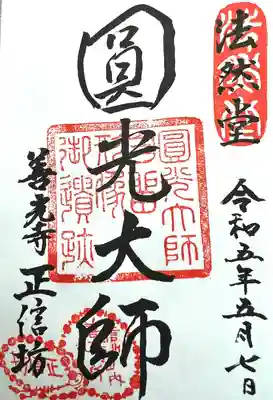 法然堂
令和五年五月七日
圓光大師
善光寺 正信坊
圓光大師
御遺跡